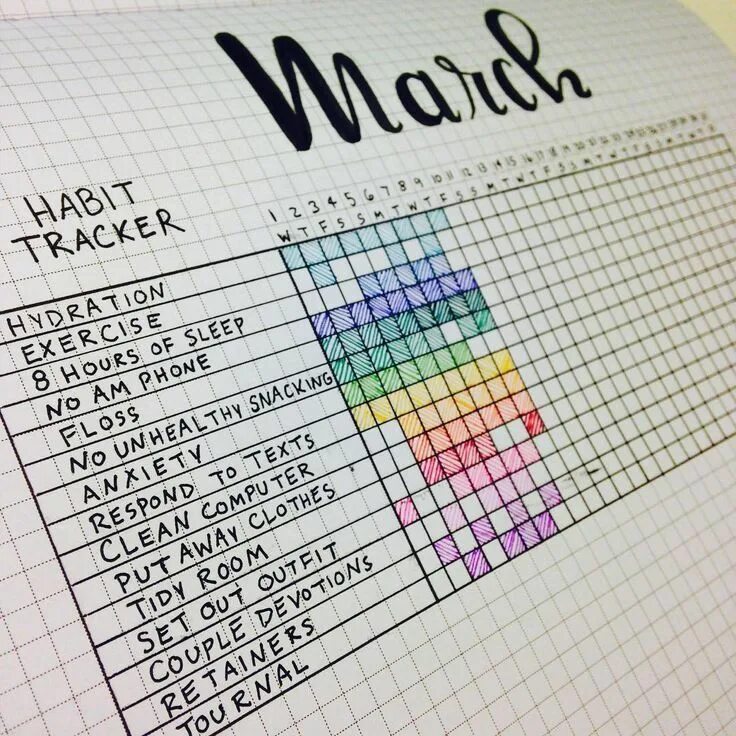 March
HABIT
TRACKER
1 2 3 4 5 6 7 8 9 10 11 12 13 14 15 16 17 18
W T F S S M T W T F S S M T W T F S S M T W T F S S M T W T F
HYDRATION
EXERCISE
8 HOURS OF SLEEP
NO AM PHONE
FLOSS
NO UNHEALTHY SNACKING
ANXIETY
RESPOND TO TEXTS
CLEAN COMPUTER
PUT AWAY CLOTHES
TIDY ROOM
SET OUT OUTFIT
COUPLE DEVOTIONS
RETAINERS
JOURNAL